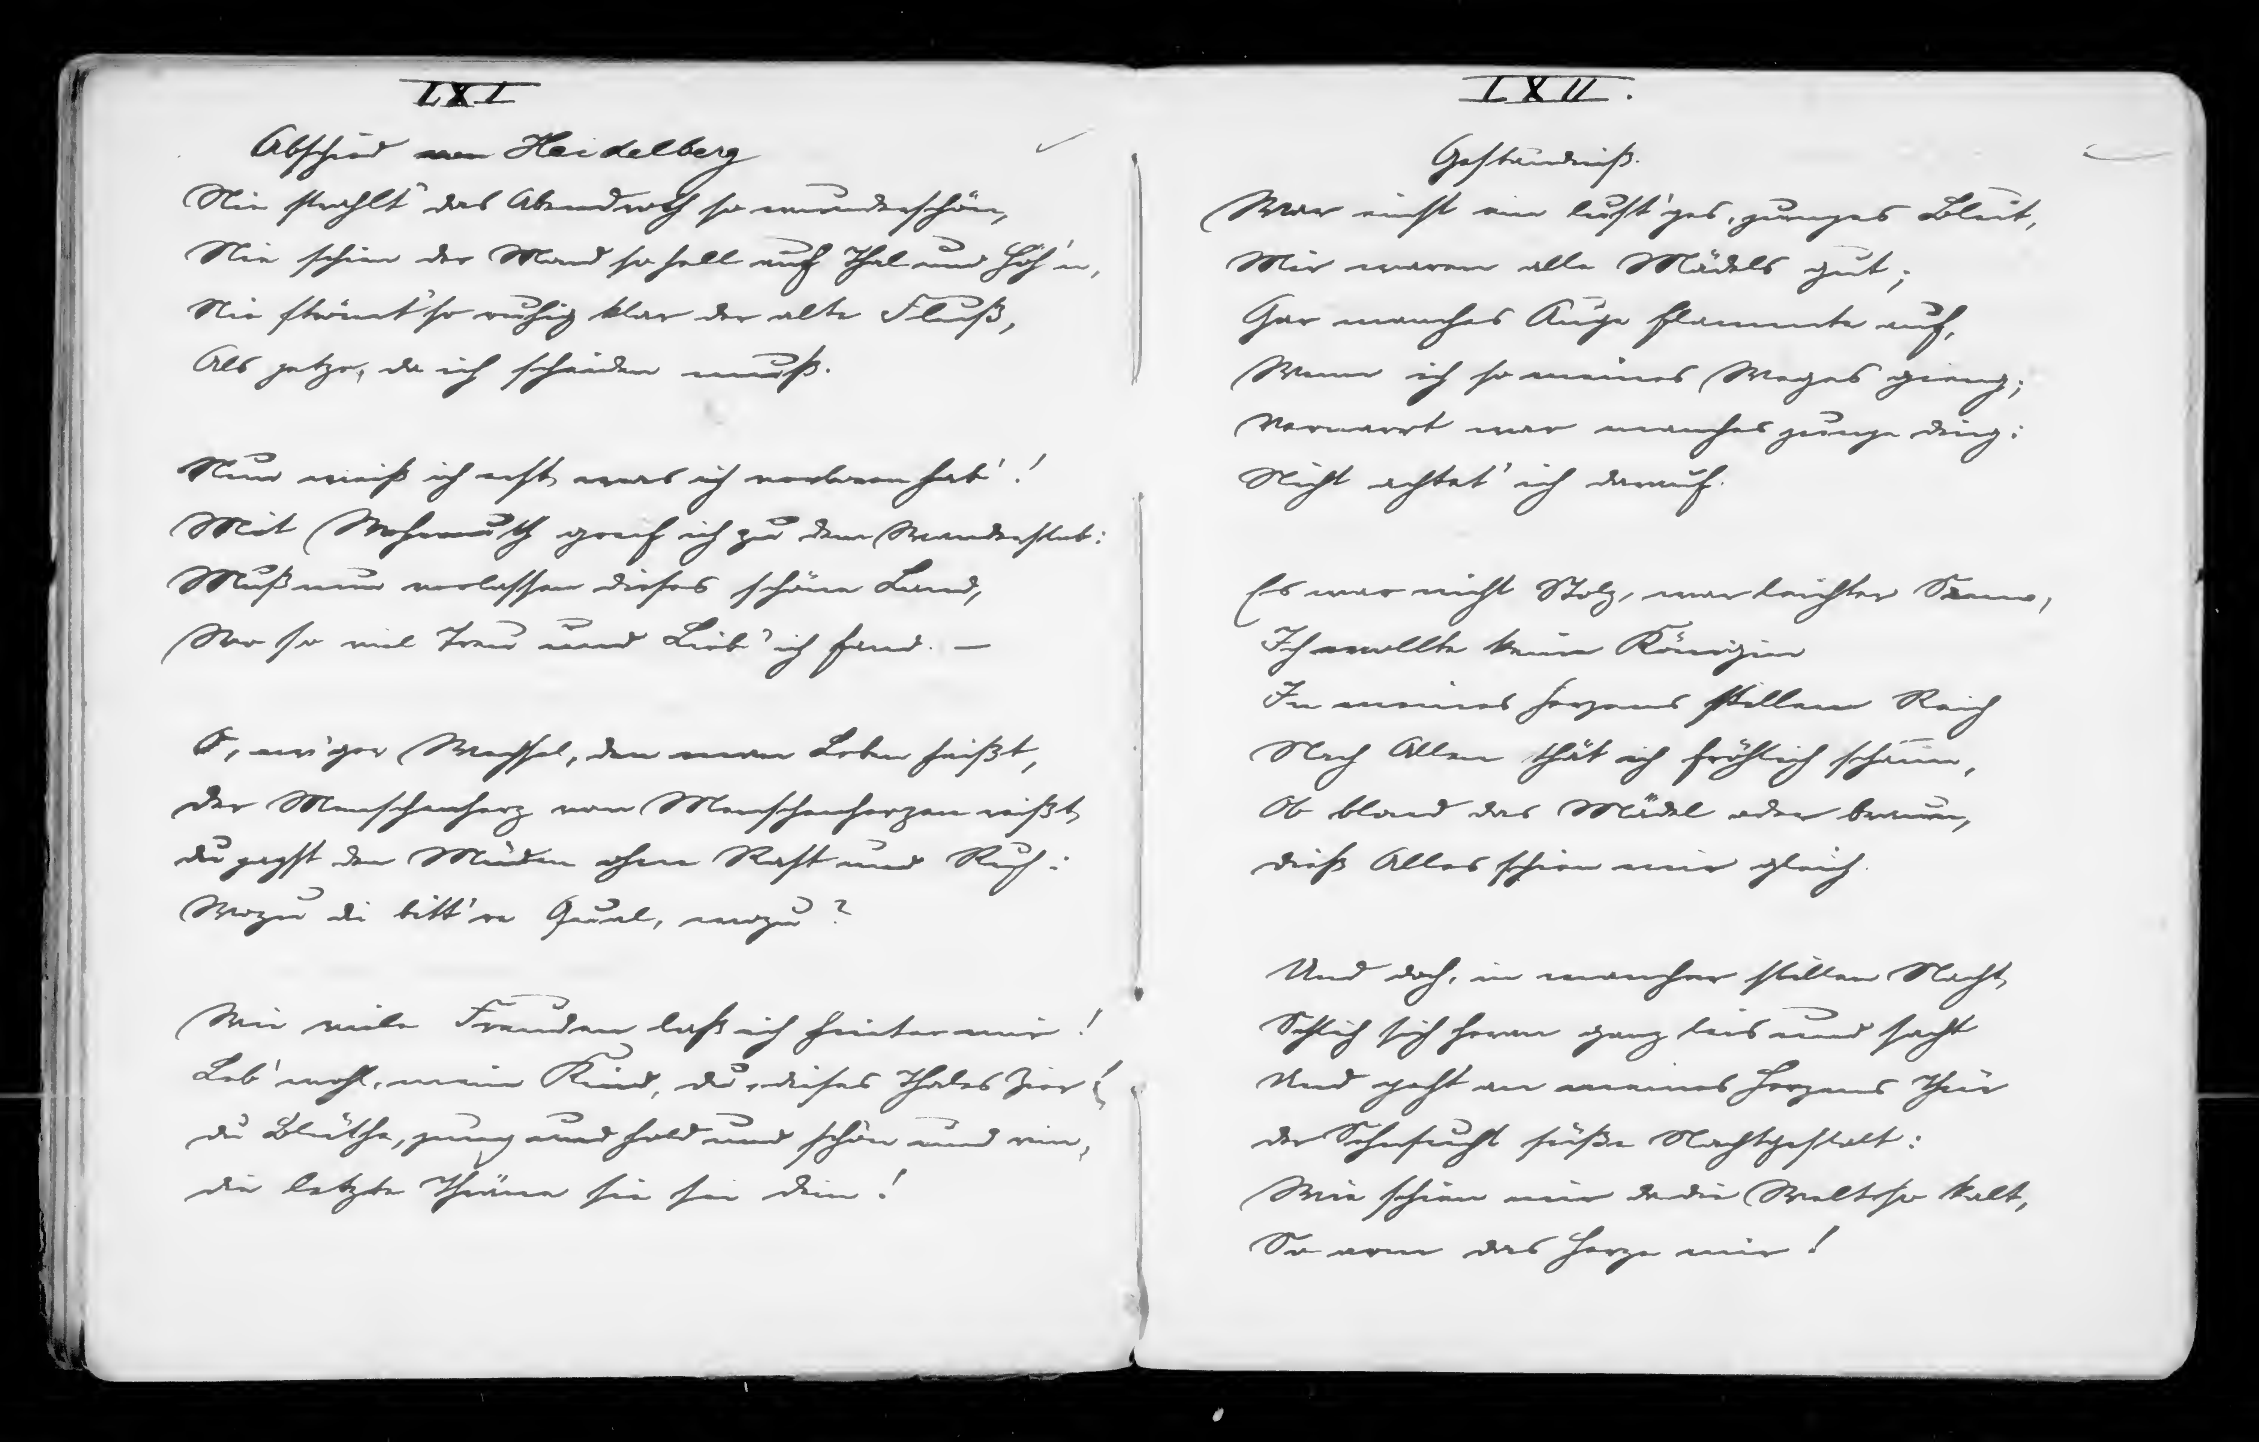 LXI
Abschied von Heidelberg
Nie strahlt' das Abendroth so wunderschön,
Nie schien der Mond so hell auf Thal und Höh'n,
Nie strömt' so ruhig klar der alte Fluß,
Als jetzo, da ich scheiden muß.
Nun weiß ich erst, was ich verloren hab'!
Mit Wehmuth greif ich zu dem Wanderstab:
Muß nun verlassen dieses schöne Land,
Wo so viel Treu und Lieb' ich fand. —
O, ew'ger Wechsel, den man Leben heißt,
Der Menschenherz von Menschenherzen reißt,
Du jagst den Müden ohne Rast und Ruh:
Wozu die bitt're Qual, wozu?
Wie viele Freuden laß ich hinter mir!
Leb' wohl, mein Kind, du, dieses Thales Zier!
Du Blüthe, jung und hold und schön und rein,
Die letzte Thräne sie sei dein!
LXII.
Geständniß.
War einst ein lust'ges, junges Blut,
Mir waren alle Mädels gut;
Gar manches Auge flammte auf,
Wenn ich so meines Weges gieng;
Vernarrt war manches junge Ding:
Nicht achtet' ich darauf.
Es war nicht Stolz, war leichter Sinn,
Ich wollte keine Königin
In meines Herzens stillem Reich
Nach Allen thät ich fröhlich schaun,
Ob blond das Mädel oder braun,
Dieß Alles schien mir gleich.
Und doch, in mancher stillen Nacht,
Schlich sich heran ganz leis und sacht
Und pocht an meines Herzens Thür
Der Sehnsucht süße Nachtgestalt:
Wie schien mir da die Welt so kalt,
So arm das Herze mir!